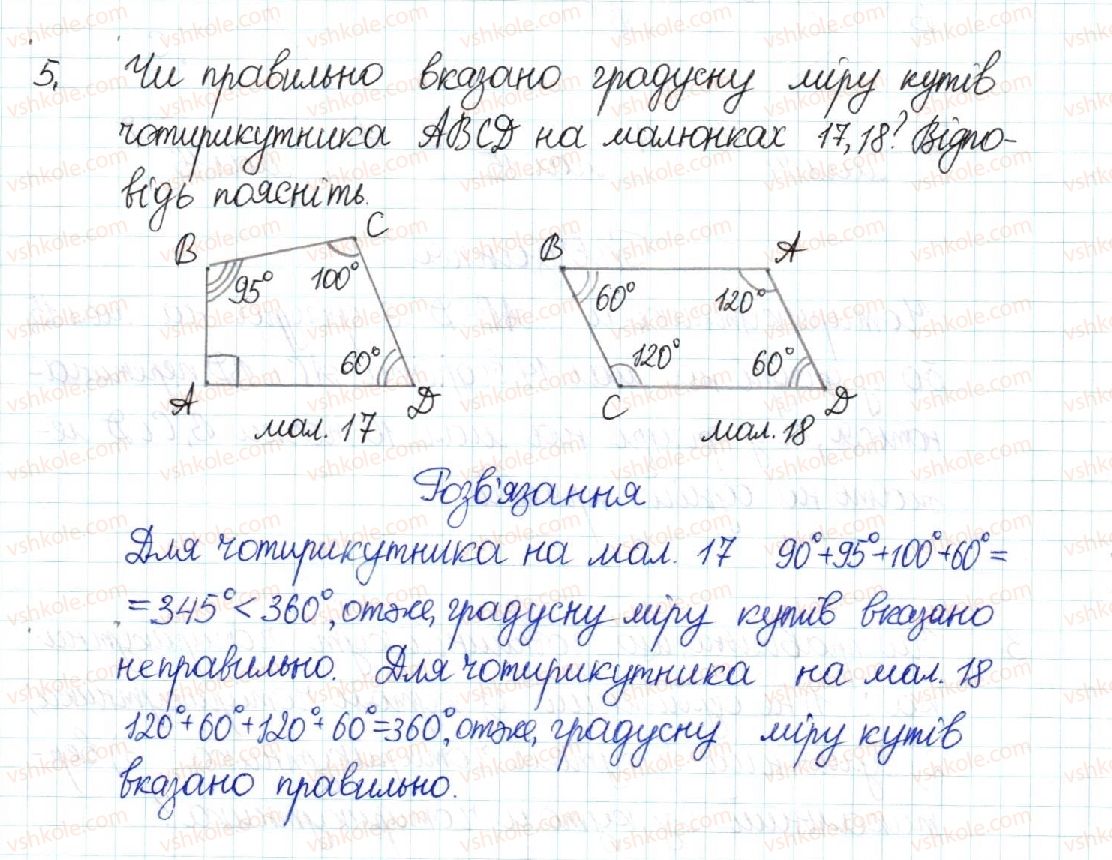 5. Чи правильно вказано градусну міру кутів
чотирикутника ABCD на малюнках 17, 18? Відпо-
відь поясніть.
B C
95° 100°
60°
A D
мал. 17
B A
60° 120°
120° 60°
C D
мал. 18
Розв'язання
Для чотирикутника на мал. 17 90°+95°+100°+60°=
=345°<360°, отже, градусну міру кутів вказано
неправильно. Для чотирикутника на мал. 18
120°+60°+120°+60°=360°, отже, градусну міру кутів
вказано правильно.
vshkole.com